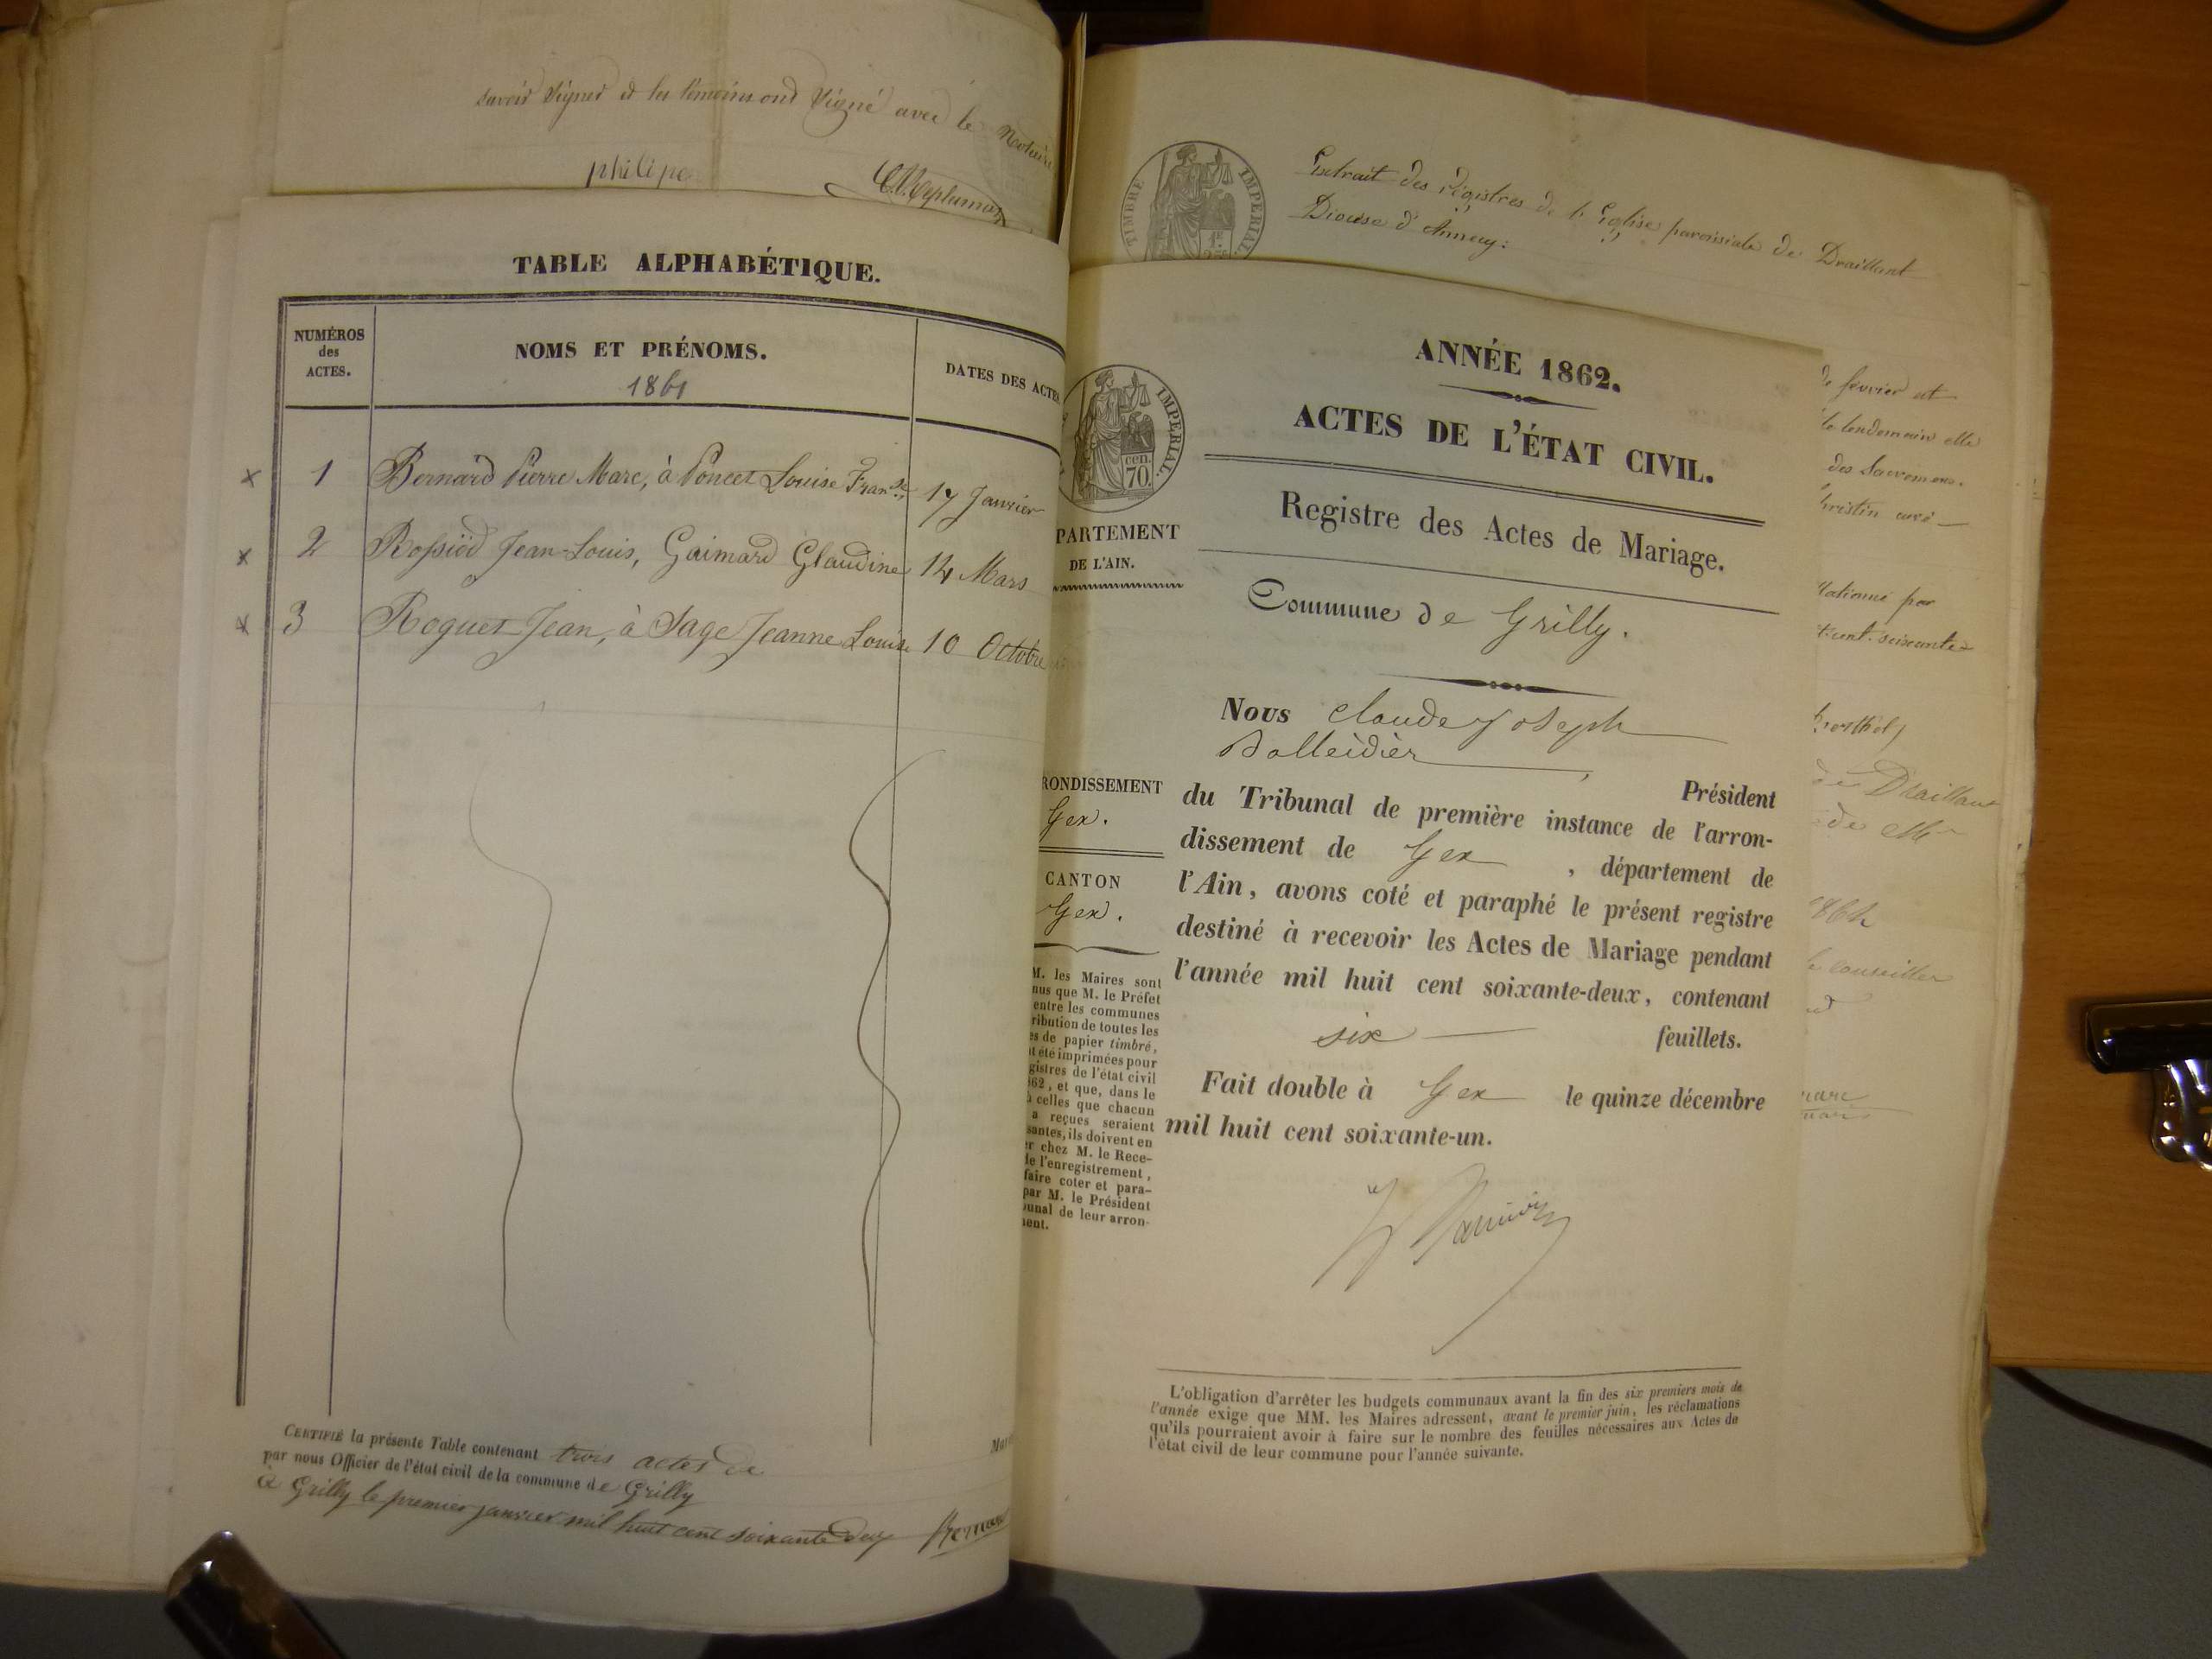 savoir signer et les témoins ont signé avec le Notaire
philipe
TABLE ALPHABÉTIQUE.
NUMÉROS
des
ACTES.
NOMS ET PRÉNOMS.
1861
DATES DES ACTES
1 Bernard Pierre Marc, à Poncet Louise Franse 17 Janvier
2 Rossiod Jean-Louis, Guimard Claudine 14 Mars
3 Roguet Jean, à Sage Jeanne Louise 10 Octobre
CERTIFIÉ la présente Table contenant trois actes de
par nous Officier de l'état civil de la commune de Grilly
à Grilly le premier janvier mil huit cent soixante deux
Extrait des régistres de l'Eglise paroissiale de Draillant
Diocèse d'Annecy:
TIMBRE IMPERIAL
IMPERIAL
cen.
70.
PARTEMENT
DE L'AIN.
RONDISSEMENT
Gex.
CANTON
Gex.
M. les Maires sont
nus que M. le Préfet
entre les communes
ribution de toutes les
es de papier timbré,
nt été imprimées pour
gistres de l'état civil
62, et que, dans le
à celles que chacun
a reçues seraient
santes, ils doivent en
er chez M. le Rece-
de l'enregistrement,
faire coter et para-
par M. le Président
bunal de leur arron-
ment.
ANNÉE 1862.
ACTES DE L'ÉTAT CIVIL.
Registre des Actes de Mariage.
Commune de Grilly.
Nous Claude Joseph
Balleidier, Président
du Tribunal de première instance de l'arron-
dissement de Gex, département de
l'Ain, avons coté et paraphé le présent registre
destiné à recevoir les Actes de Mariage pendant
l'année mil huit cent soixante-deux, contenant
six feuillets.
Fait double à Gex le quinze décembre
mil huit cent soixante-un.
L'obligation d'arrêter les budgets communaux avant la fin des six premiers mois de
l'année exige que MM. les Maires adressent, avant le premier juin, les réclamations
qu'ils pourraient avoir à faire sur le nombre des feuilles nécessaires aux Actes de
l'état civil de leur commune pour l'année suivante.
de fevrier et
le lendemain elle
des Sacremens.
par
de Draillant
le conseiller